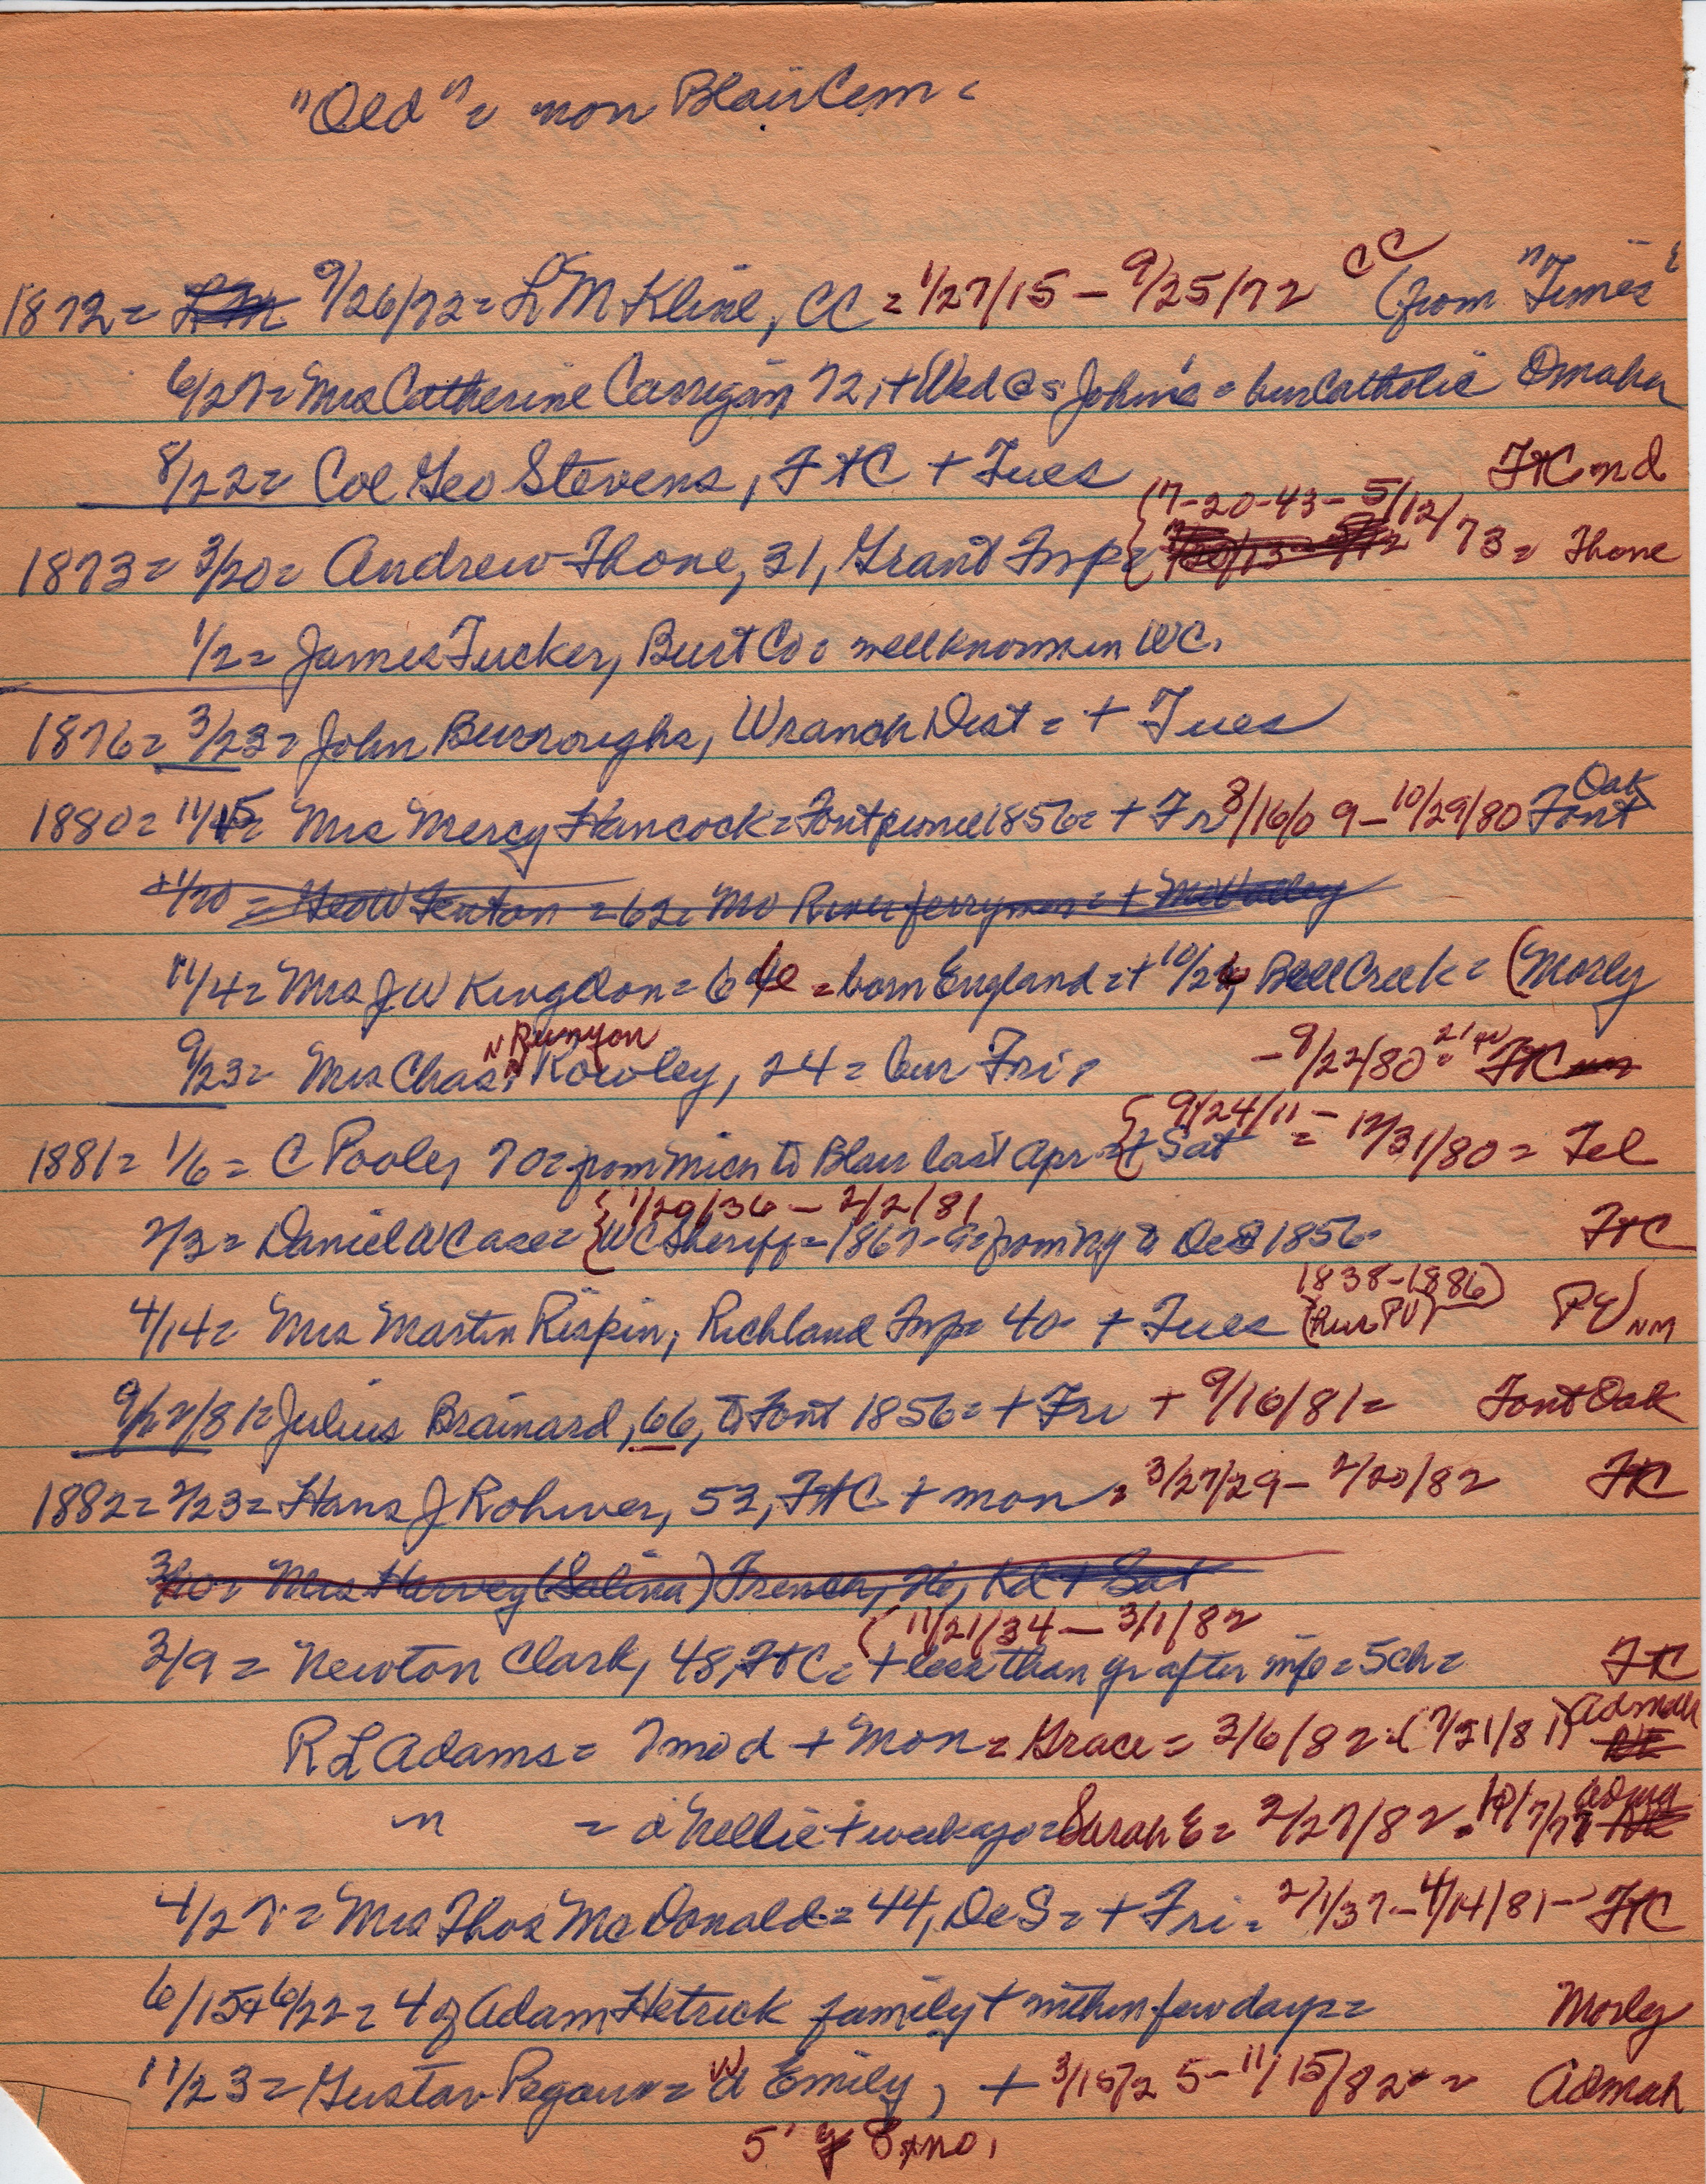 "Old" = non Blair Cem =
1872 = LM 9/26/72 = L M Kline, CC = 1/27/15 - 9/25/72 CC (from "Times"
6/27 = Mrs Catherine Carrigan 72, + Wed @ s John's = bur Catholic Omaha
8/22 = Col Geo Stevens, FtC + Tues FtC nd
(7-20-43 - 5/12/73 = Thone
1873 = 3/20 = Andrew Thone, 31, Grant Twp =
1/2 = James Tucker, Burt Co = well known in WC.
1876 = 3/23 = John Burroughs, Wranch Dist = + Tues
Oak
1880 = 11/45 = Mrs Mercy Hancock = Font pioneer 1856 = + Fr 8/16/09 - 10/29/80 Font
11/20 = Geo W Fenton = 62 = Mo River ferryman = + Mo Valley
11/4 = Mrs J W Kingdon = 66 = born England = + 10/26, Bell Creek = (Morly
N Runyon
9/23 = Mrs Chas Rowley, 24 = bur Fri = - 9/22/80 = FtC
{9/24/11 - = 12/31/80 = Tel
1881 = 1/6 = C Poole, 70 = from Mich to Blair last Apr = + Sat
{1/20/36 - 2/2/81
2/3 = Daniel W Case = WC Sheriff = 1867-9 = from NY to DeS 1856 = FtC
1838-1886)
4/14 = Mrs Martin Rispin, Richland Twp = 40 + Tues (Rur PV) PV NM
9/22/81 = Julius Brainard, 66, to Font 1856 = + Fri + 9/16/81 = Font Oak
1882 = 2/23 = Hans J Rohwer, 53, FtC + Mon = 3/27/29 - 2/20/82 FtC
3/10 = Mrs Harvey (Salina) French, 26, Kd + Sat
(11/21/34 - 3/1/82
3/9 = Newton Clark, 48, FtC = + less than yr after wife = 5 ch = FtC
R L Adams = 7 mo d + Mon = Grace = 3/6/82 = (7/21/81) Admah
" = d Nellie + week ago = Sarah E = 2/27/82 = 10/7/77 Admah
4/27 = Mrs Thos McDonald = 44, DeS = + Fri = 2/1/37 - 4/14/81 - FtC
6/15 + 6/22 = 4 of Adam Hetrick family + within few days = Morly
11/23 = Gustav Pegau = W Emily, + 3/15/25 - 11/15/82 = Admah
5' y 8 mo,